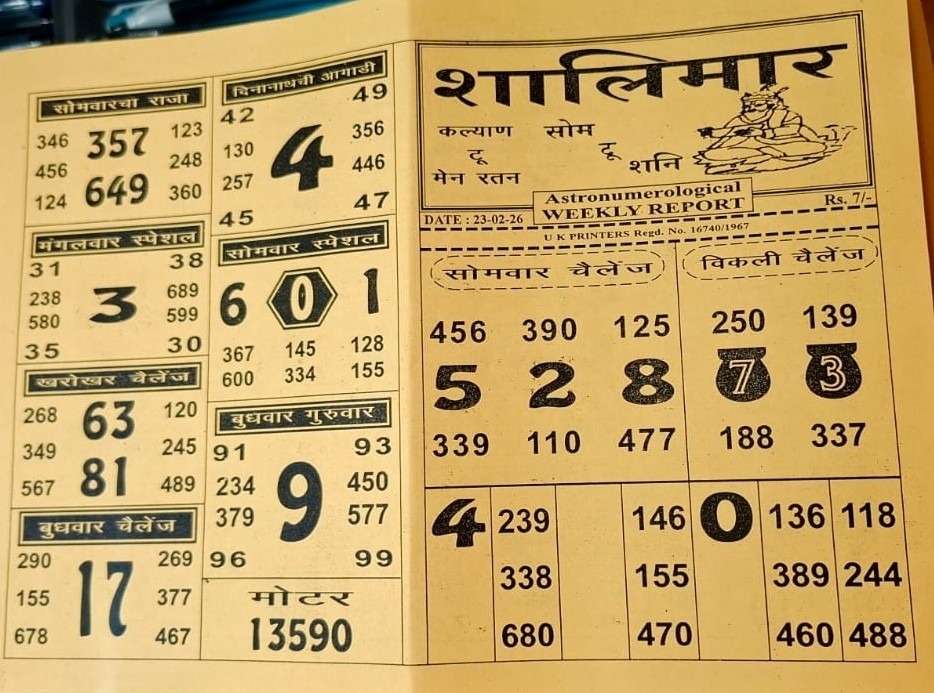 सोमवारचा राजा
346 357 123
456 248
124 649 360
मंगलवार स्पेशल
31 38
238 3 689
580 599
35 30
खरोखर चैलेंज
268 63 120
349 245
567 81 489
बुधवार चैलेंज
290 269
155 17 377
678 467
दिनानाथची आगाडी
42 49
130 4 356
257 446
45 47
सोमवार स्पेशल
6 0 1
367 145 128
600 334 155
बुधवार गुरुवार
91 93
234 9 450
379 577
96 99
मोटर
13590
शालिमार
कल्याण सोम
टू टू
मेन रतन शनि
Astronumerological
WEEKLY REPORT
DATE : 23-02-26
Rs. 7/-
U K PRINTERS Regd. No. 16740/1967
सोमवार चैलेंज
456 390 125
5 2 8
339 110 477
विकली चैलेंज
250 139
7 3
188 337
4 239 146 0 136 118
338 155 389 244
680 470 460 488